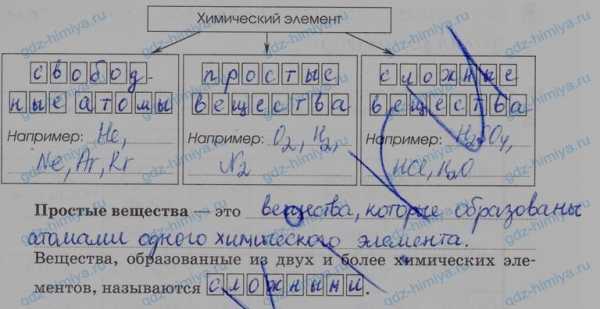 Химический элемент
свобод-
ные атомы
Например: He,
Ne, Ar, Kr
простые
вещества
Например: O2, H2,
N2
сложные
вещества
Например: H2SO4,
HCl, H2O
Простые вещества — это вещества, которые образованы
атомами одного химического элемента.
Вещества, образованные из двух и более химических эле-
ментов, называются сложными.
gdz-himiya.ru